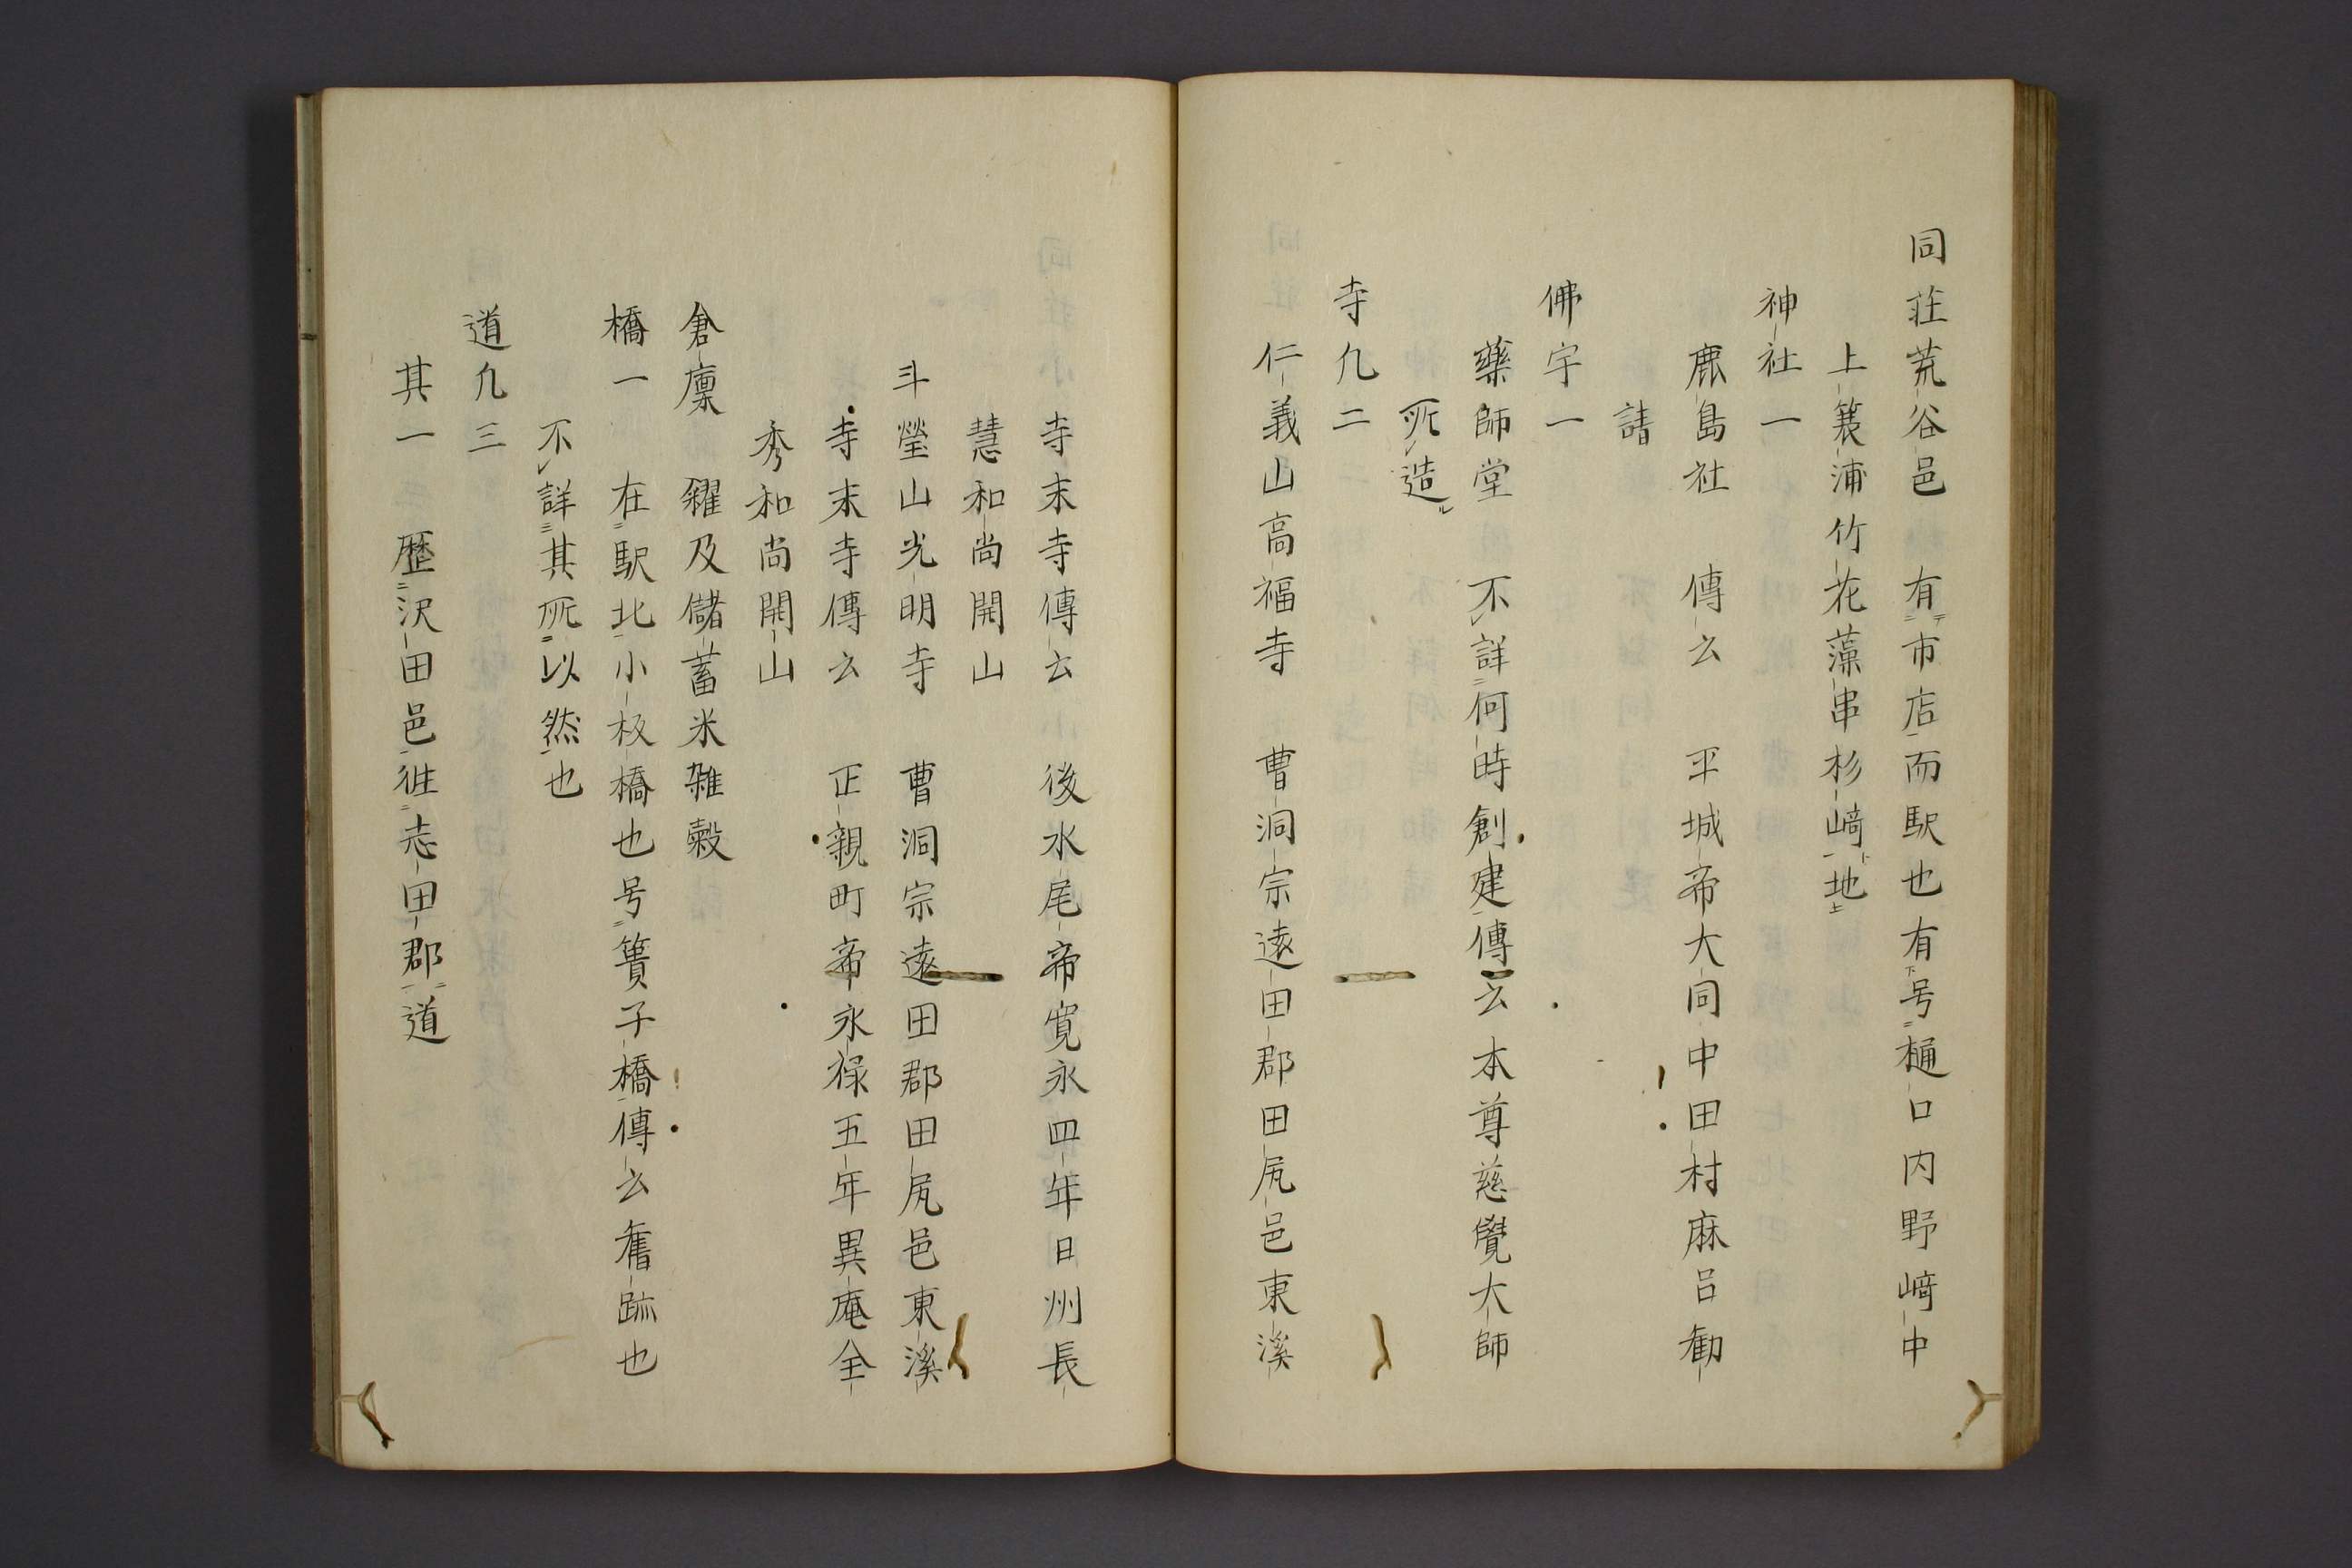 同荘荒谷邑 有市店而駅也有号樋口内野﨑中
上簑浦竹花藻串杉﨑地
神社一
鹿島社 傳云 平城帝大同中田村麻呂勧
請
佛宇一
藥師堂 不詳何時創建傳云本尊慈覺大師
所造
寺凡二
仁義山高福寺 曹洞宗遠田郡田尻邑東溪
寺末寺傳云 後水尾帝寛永四年日州長
慧和尚開山
斗瑩山光明寺 曹洞宗遠田郡田尻邑東溪
寺末寺傳云 正親町帝永禄五年異庵全
秀和尚開山
倉廩 糴及儲蓄米雑穀
橋一 在駅北小板橋也号簀子橋傳云舊跡也
不詳其所以然也
道凡三
其一 歴沢田邑徃志田郡道